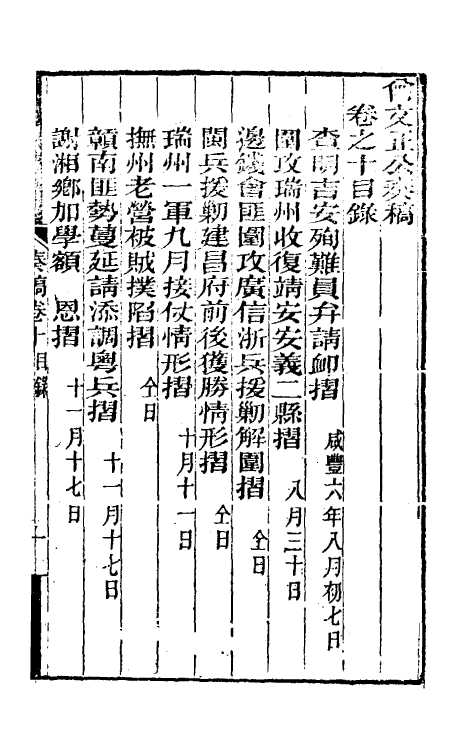 曾文正公奏稿
卷之十目錄
查明吉安殉難員弁請卹摺 咸豐六年八月初七日
圍攻瑞州收復靖安安義二縣摺 八月三十日
邊錢會匪圍攻廣信浙兵援剿解圍摺 仝日
閩兵援剿建昌府前後獲勝情形摺 仝日
瑞州一軍九月接仗情形摺 十月十一日
撫州老營被賊撲陷摺 仝日
贛南匪勢蔓延請添調粵兵摺 十一月十七日
謝湘鄉加學額 恩摺 十一月十七日
奏稿卷十目錄 一